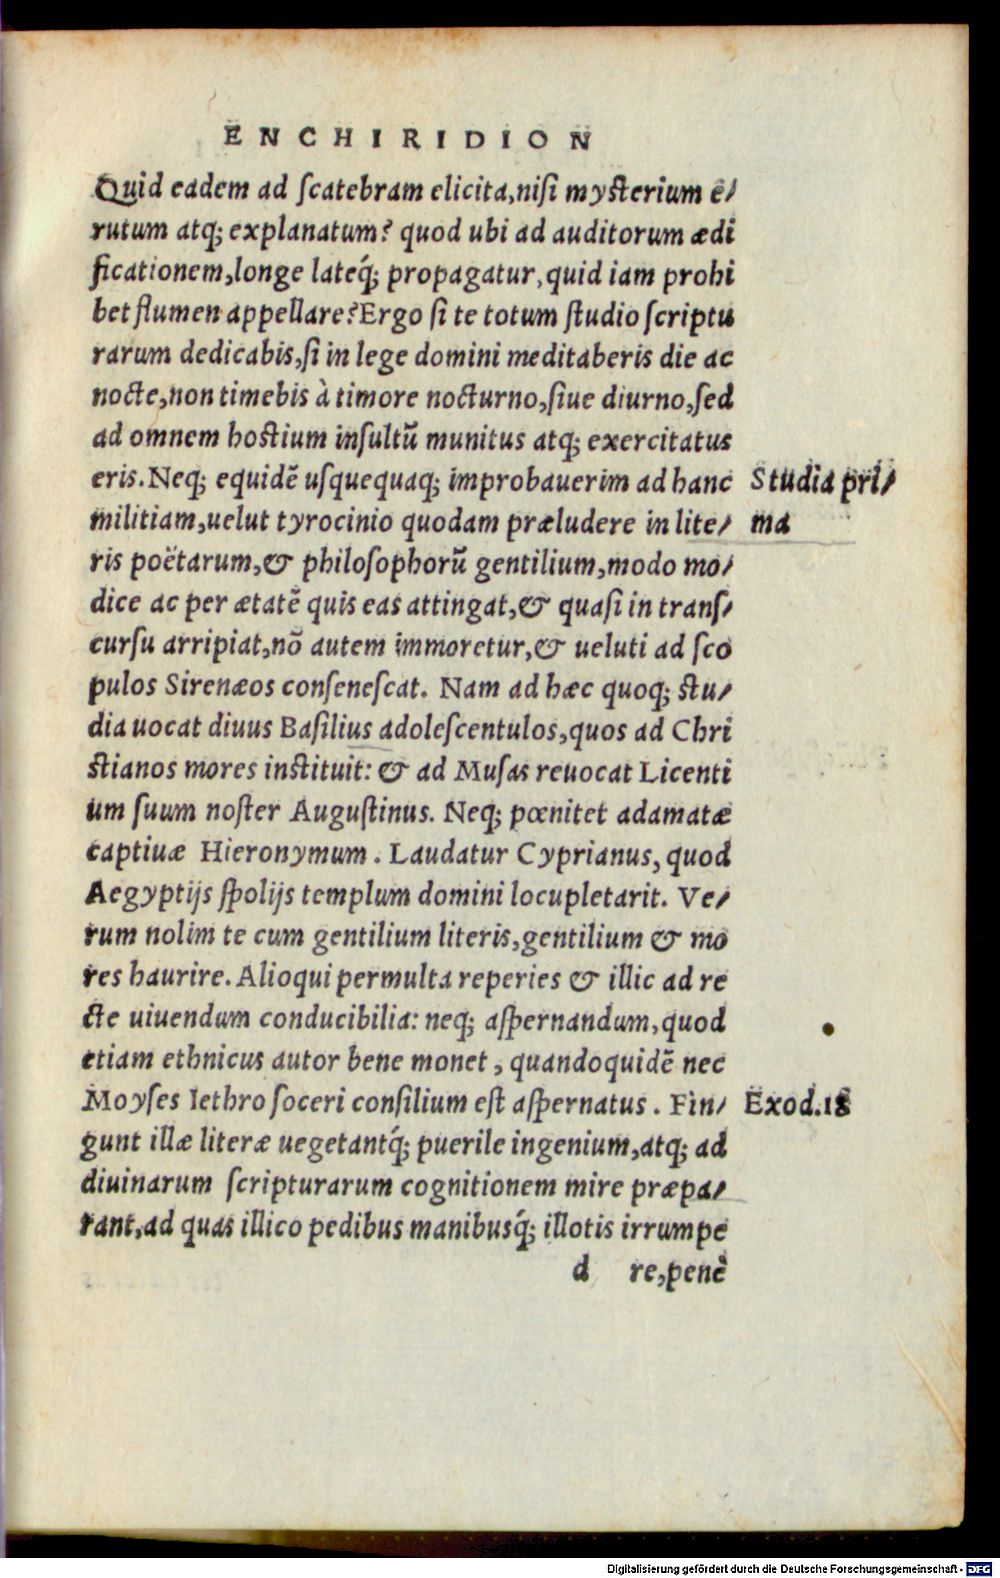 ENCHIRIDION
Quid eadem ad ſcatebram elicita,niſi myſterium e/
rutum atq; explanatum? quod ubi ad auditorum ædi
ficationem,longe lateq́; propagatur,quid iam prohi
bet flumen appellare?Ergo ſi te totum ſtudio ſcriptu
rarum dedicabis,ſi in lege domini meditaberis die ac
nocte,non timebis à timore nocturno,ſiue diurno,ſed
ad omnem hoſtium inſultū munitus atq; exercitatus
eris.Neq; equidē uſquequaq; improbauerim ad hanc
Studia pri/
militiam,uelut tyrocinio quodam præludere in lite/
ma
ris poëtarum,& philoſophorū gentilium,modo mo/
dice ac per ætatē quis eas attingat,& quaſi in tranſ/
curſu arripiat,nō autem immoretur,& ueluti ad ſco
pulos Sirenæos conſeneſcat. Nam ad hæc quoq; ſtu/
dia uocat diuus Baſilius adoleſcentulos,quos ad Chri
ſtianos mores inſtituit: & ad Muſas reuocat Licenti
um ſuum noſter Auguſtinus. Neq; pœnitet adamatæ
captiuæ Hieronymum. Laudatur Cyprianus, quod
Aegyptijs ſpolijs templum domini locupletarit. Ve/
rum nolim te cum gentilium literis,gentilium & mo
res haurire. Alioqui permulta reperies & illic ad re
cte uiuendum conducibilia: neq; aſpernandum,quod
etiam ethnicus autor bene monet, quandoquidē nec
Moyſes Iethro ſoceri conſilium eſt aſpernatus. Fin/
Exod.18
gunt illæ literæ uegetantq́; puerile ingenium,atq; ad
diuinarum ſcripturarum cognitionem mire præpa/
rant,ad quas illico pedibus manibusq́; illotis irrumpe
d re,penè
Digitalisierung gefördert durch die Deutsche Forschungsgemeinschaft - DFG